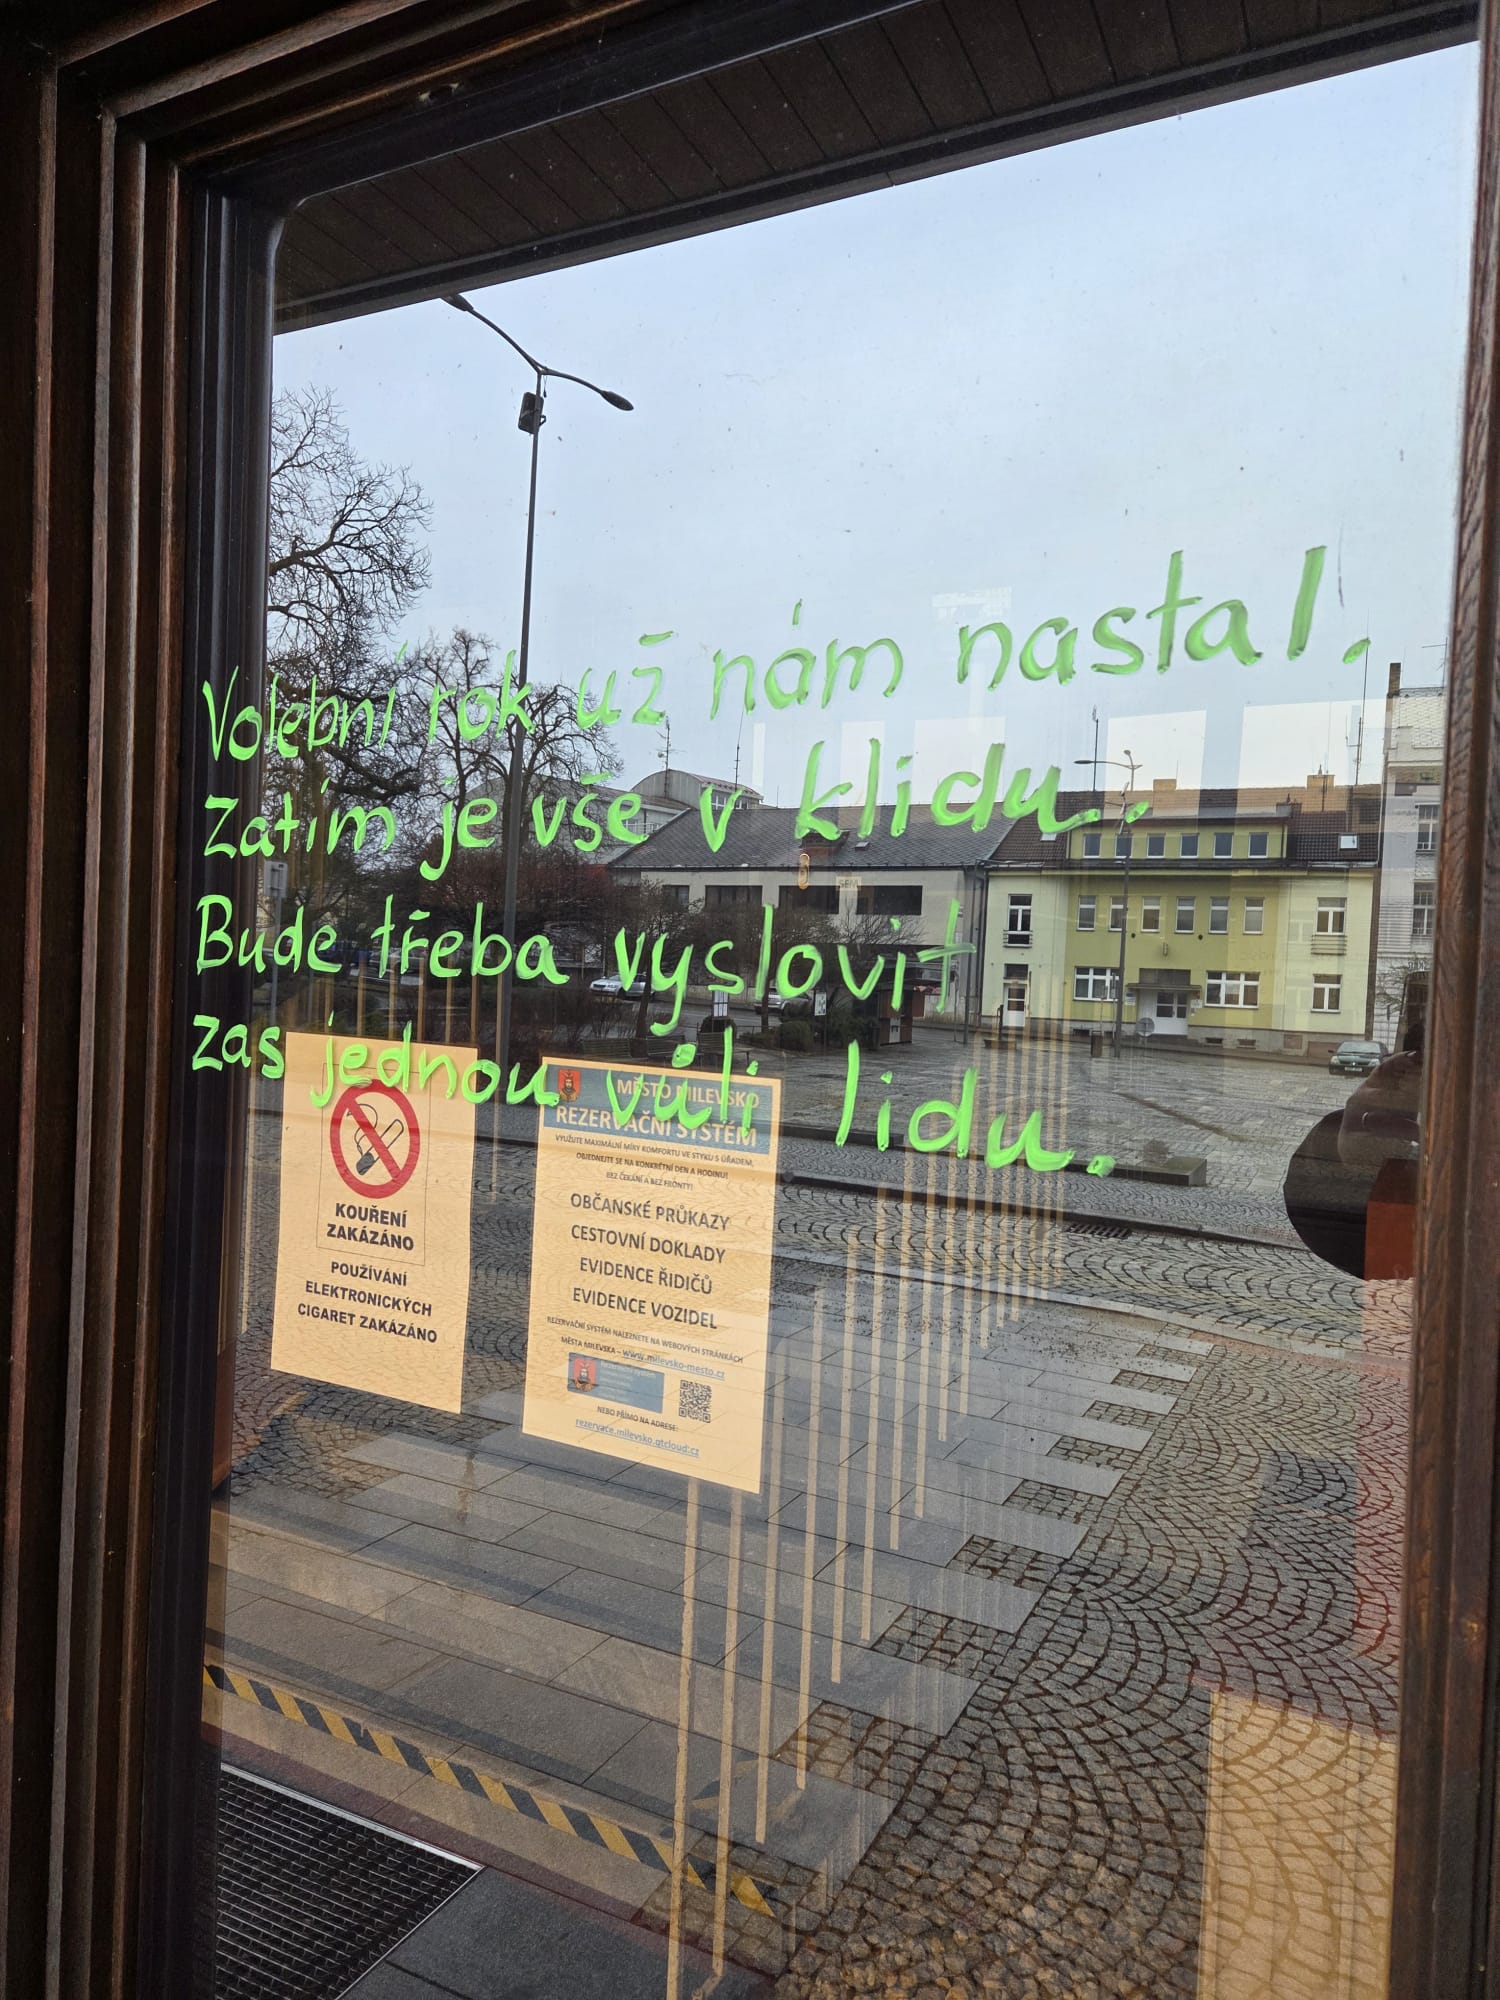 Volební rok už nám nastal.
Zatím je vše v klidu..
Bude třeba vyslovit
zas jednou vůli lidu.
KOUŘENÍ
ZAKÁZÁNO
POUŽÍVÁNÍ
ELEKTRONICKÝCH
CIGARET ZAKÁZÁNO
MĚSTO MILEVSKO
REZERVAČNÍ SYSTÉM
VYUŽIJTE MAXIMÁLNÍ MÍRY KOMFORTU VE STYKU S ÚŘADEM,
OBJEDNEJTE SE NA KONKRÉTNÍ DEN A HODINU!
BEZ ČEKÁNÍ A BEZ FRONTY!
OBČANSKÉ PRŮKAZY
CESTOVNÍ DOKLADY
EVIDENCE ŘIDIČŮ
EVIDENCE VOZIDEL
REZERVAČNÍ SYSTÉM NALEZNETE NA WEBOVÝCH STRÁNKÁCH
MĚSTA MILEVSKA – www.milevsko-mesto.cz
NEBO PŘÍMO NA ADRESE:
rezervace.milevsko.qtcloud.cz
SEM